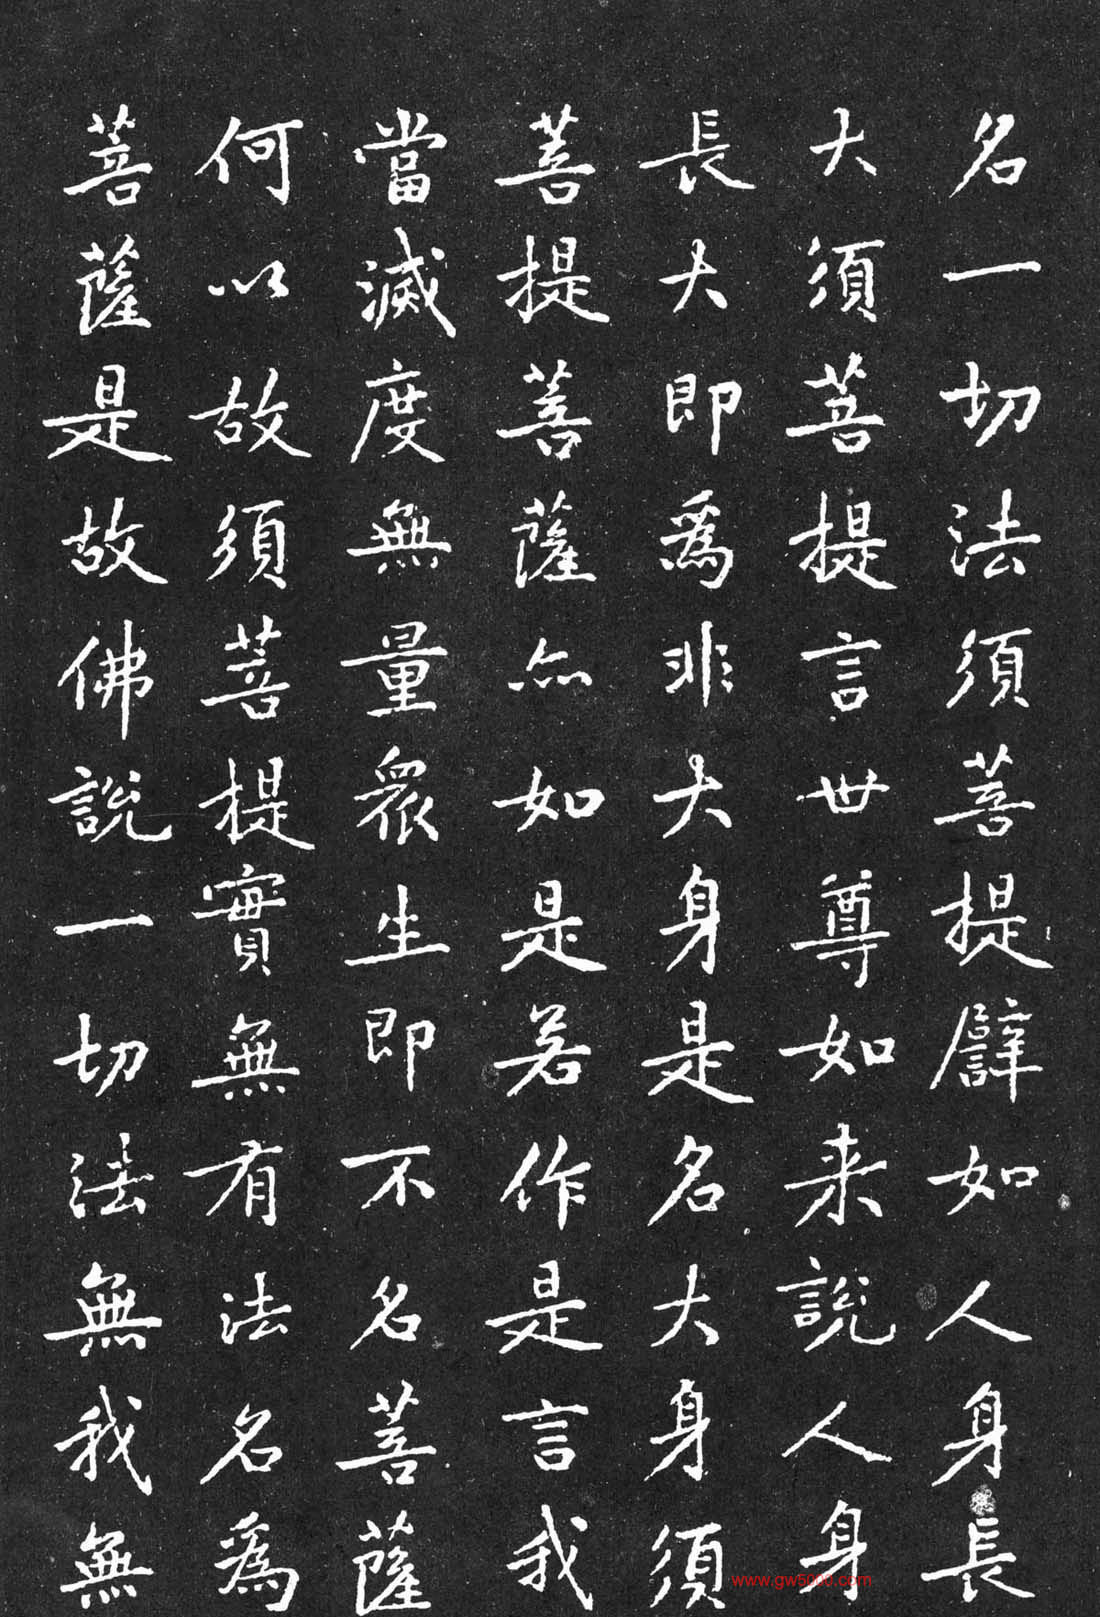 名一切法須菩提譬如人身長
大須菩提言世尊如来說人身
長大即爲非大身是名大身須
菩提菩薩亦如是若作是言我
當滅度無量眾生即不名菩薩
何以故須菩提實無有法名爲
菩薩是故佛說一切法無我無
www.gw5000.com